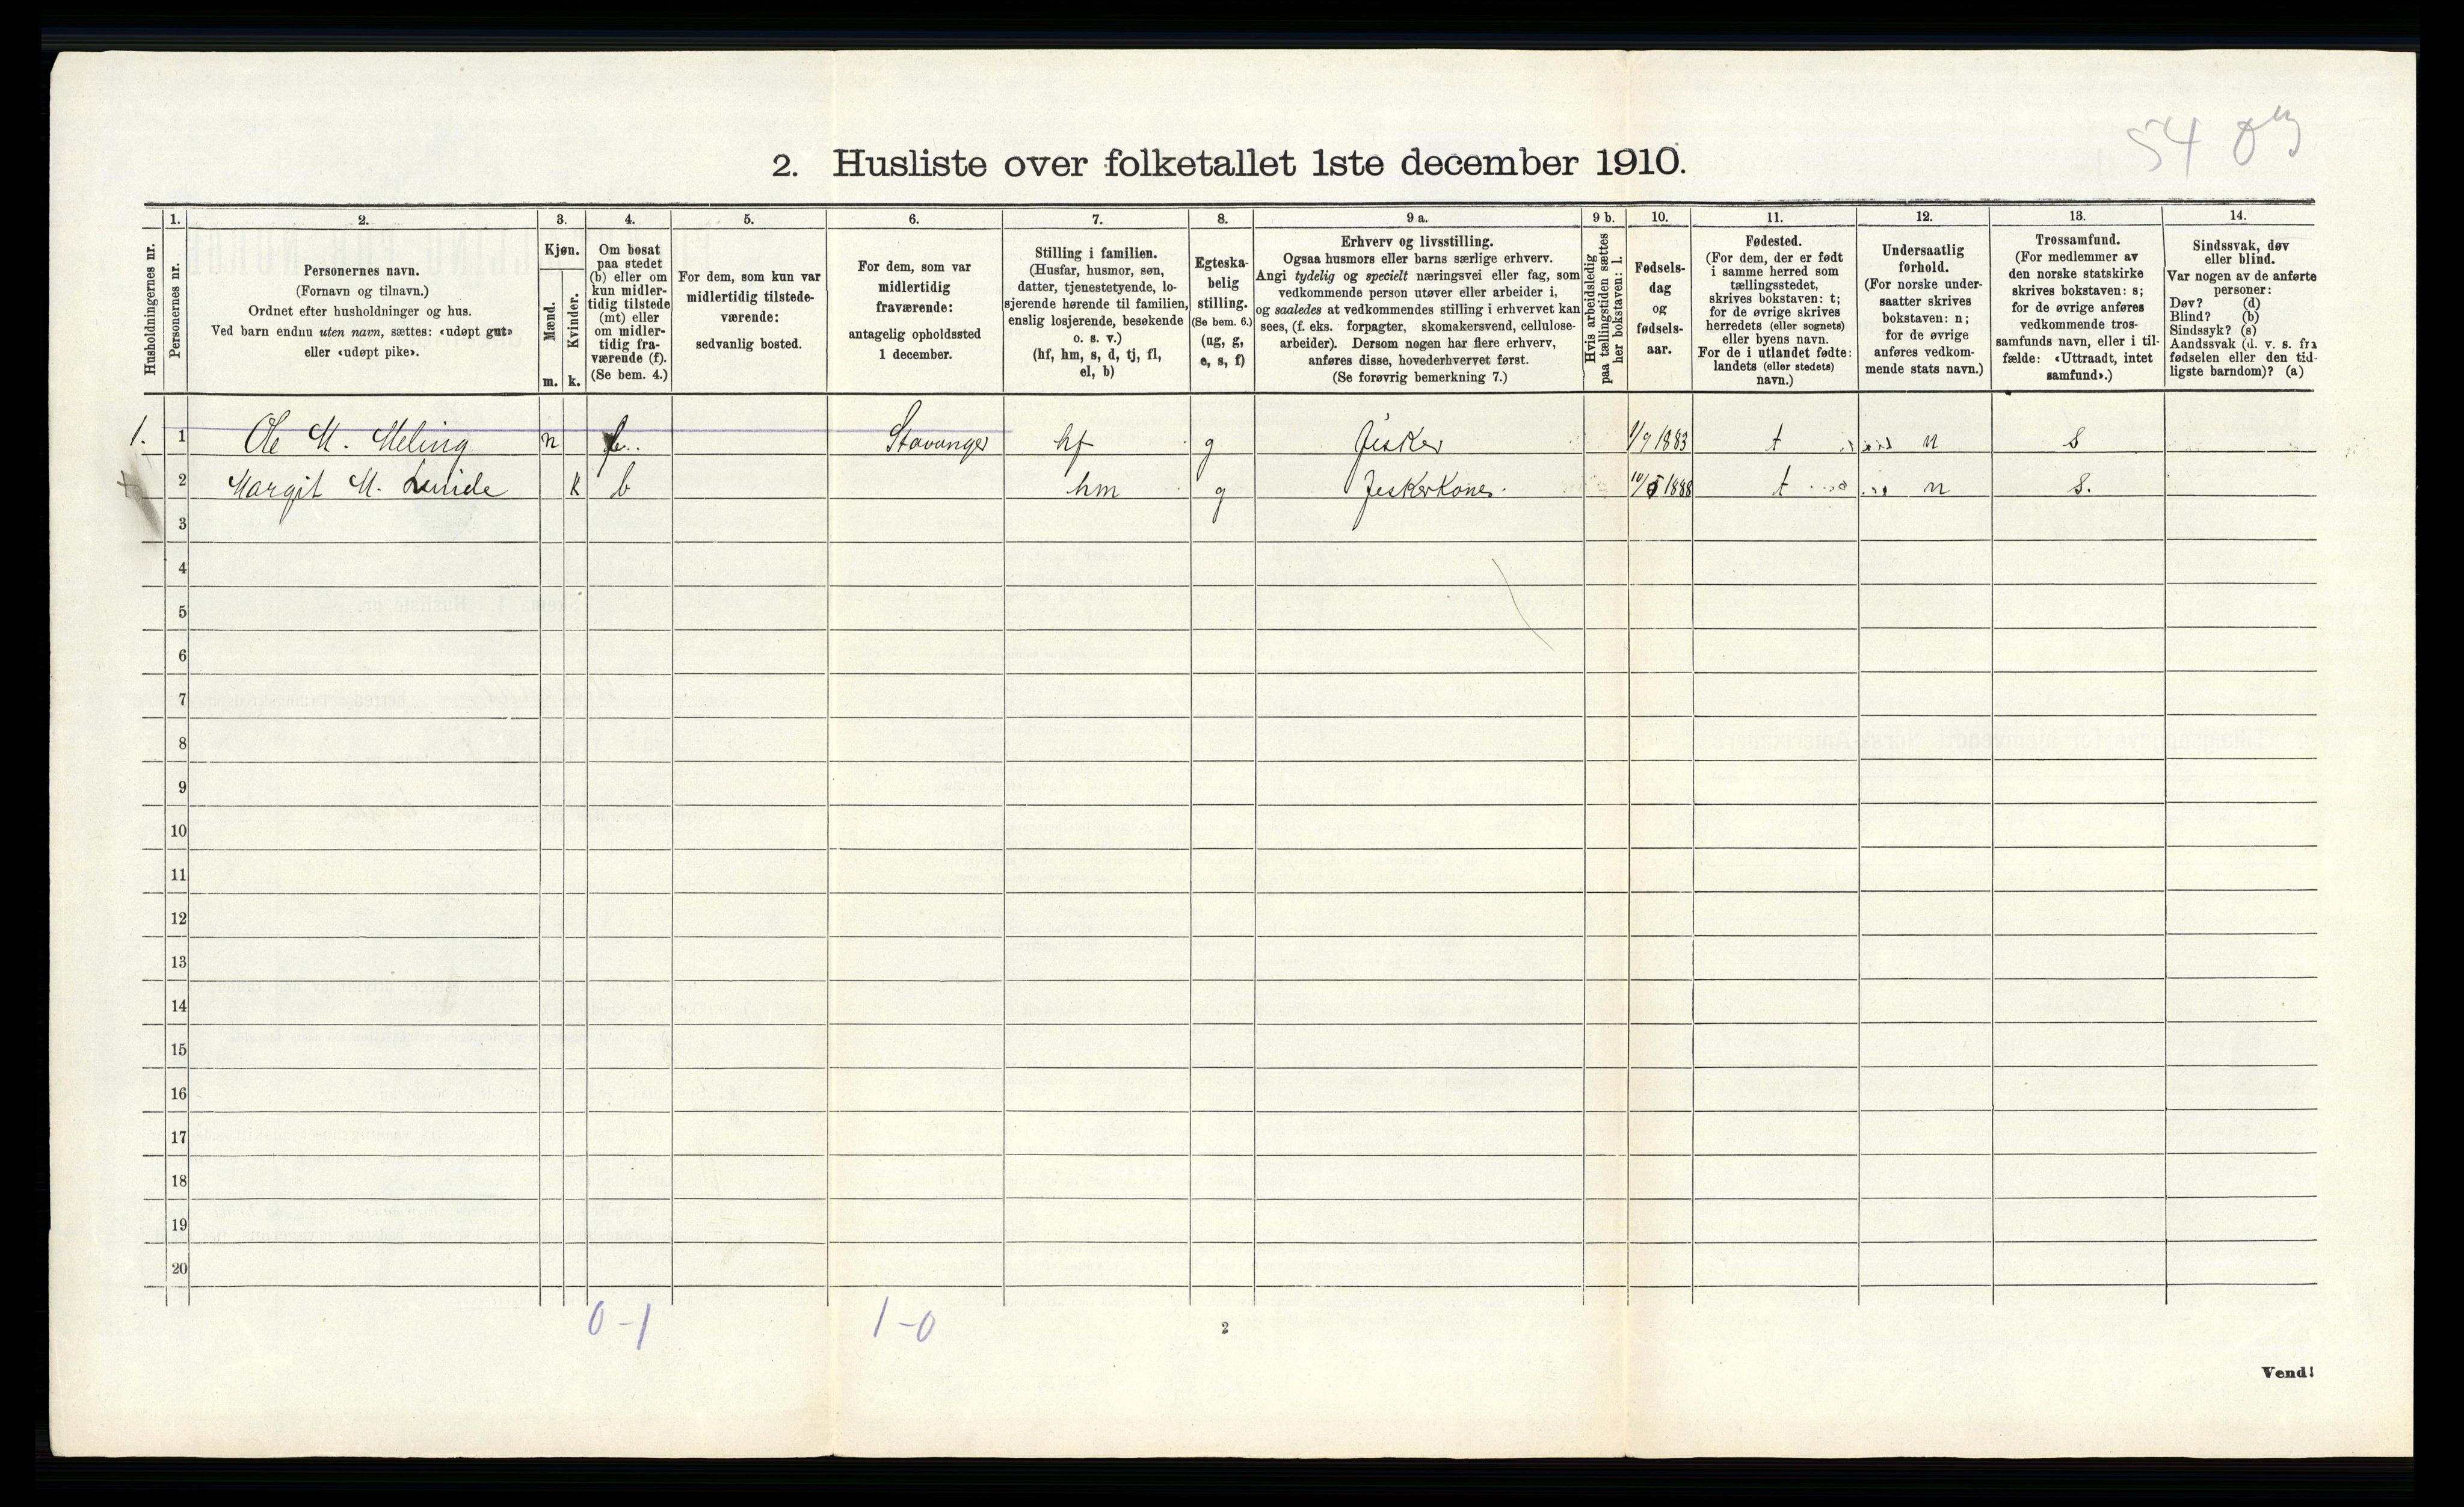 54
2. Husliste over folketallet 1ste december 1910.
Husholdningernes nr.
1.
Personernes nr.
2.
Personernes navn.
(Fornavn og tilnavn.)
Ordnet efter husholdninger og hus.
Ved barn endnu uten navn, sættes: «udøpt gut»
eller «udøpt pike».
3.
Kjøn.
Mænd.
Kvinder.
m. k.
4.
Om bosat
paa stedet
(b) eller om
kun midler-
tidig tilstede
(mt) eller
om midler-
tidig fra-
værende (f).
(Se bem. 4.)
5.
For dem, som kun var
midlertidig tilstede-
værende:
sedvanlig bosted.
6.
For dem, som var
midlertidig
fraværende:
antagelig opholdssted
1 december.
7.
Stilling i familien.
(Husfar, husmor, søn,
datter, tjenestetyende, lo-
sjerende hørende til familien,
enslig losjerende, besøkende
o. s. v.)
(hf, hm, s, d, tj, fl,
el, b)
8.
Egteska-
belig
stilling.
(Se bem. 6.)
(ug, g,
e, s, f)
9 a.
Erhverv og livsstilling.
Ogsaa husmors eller barns særlige erhverv.
Angi tydelig og specielt næringsvei eller fag, som
vedkommende person utøver eller arbeider i,
og saaledes at vedkommendes stilling i erhvervet kan
sees, (f. eks. forpagter, skomakersvend, cellulose-
arbeider). Dersom nogen har flere erhverv,
anføres disse, hovederhvervet først.
(Se forøvrig bemerkning 7.)
9 b.
Hvis arbeidsledig
paa tællingstiden sættes
her bokstaven: l.
10.
Fødsels-
dag
og
fødsels-
aar.
11.
Fødested.
(For dem, der er født
i samme herred som
tællingsstedet,
skrives bokstaven: t;
for de øvrige skrives
herredets (eller sognets)
eller byens navn.
For de i utlandet fødte:
landets (eller stedets)
navn.)
12.
Undersaatlig
forhold.
(For norske under-
saatter skrives
bokstaven: n;
for de øvrige
anføres vedkom-
mende stats navn.)
13.
Trossamfund.
(For medlemmer av
den norske statskirke
skrives bokstaven: s;
for de øvrige anføres
vedkommende tros-
samfunds navn, eller i til-
fælde: «Uttraadt, intet
samfund».)
14.
Sindssvak, døv
eller blind.
Var nogen av de anførte
personer:
Døv? (d)
Blind? (b)
Sindssyk? (s)
Aandssvak (d. v. s. fra
fødselen eller den tid-
ligste barndom)? (a)
1. 1 Ole M. Meling Stavanger hf g Fisker 1/9 1883 t n s
2 Margit M. Lunde k b hm g Fiskerkone. 1888 t n s.
3
4
5
6
7
8
9
10
11
12
13
14
15
16
17
18
19
20
0-1 1-0
2
Vend!